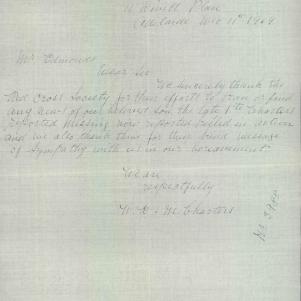 Adelaide Dec 11th 1919
Mr Edmonds
Dear Sir
We sincerely thank the
Red Cross Society for their efforts to
any news of our beloved son the late Pte Charters
reported missing now reported killed in action
and we also thank them for their kind message
of sympathy with us in our bereavement
We are
respectfully
W. & M Charters